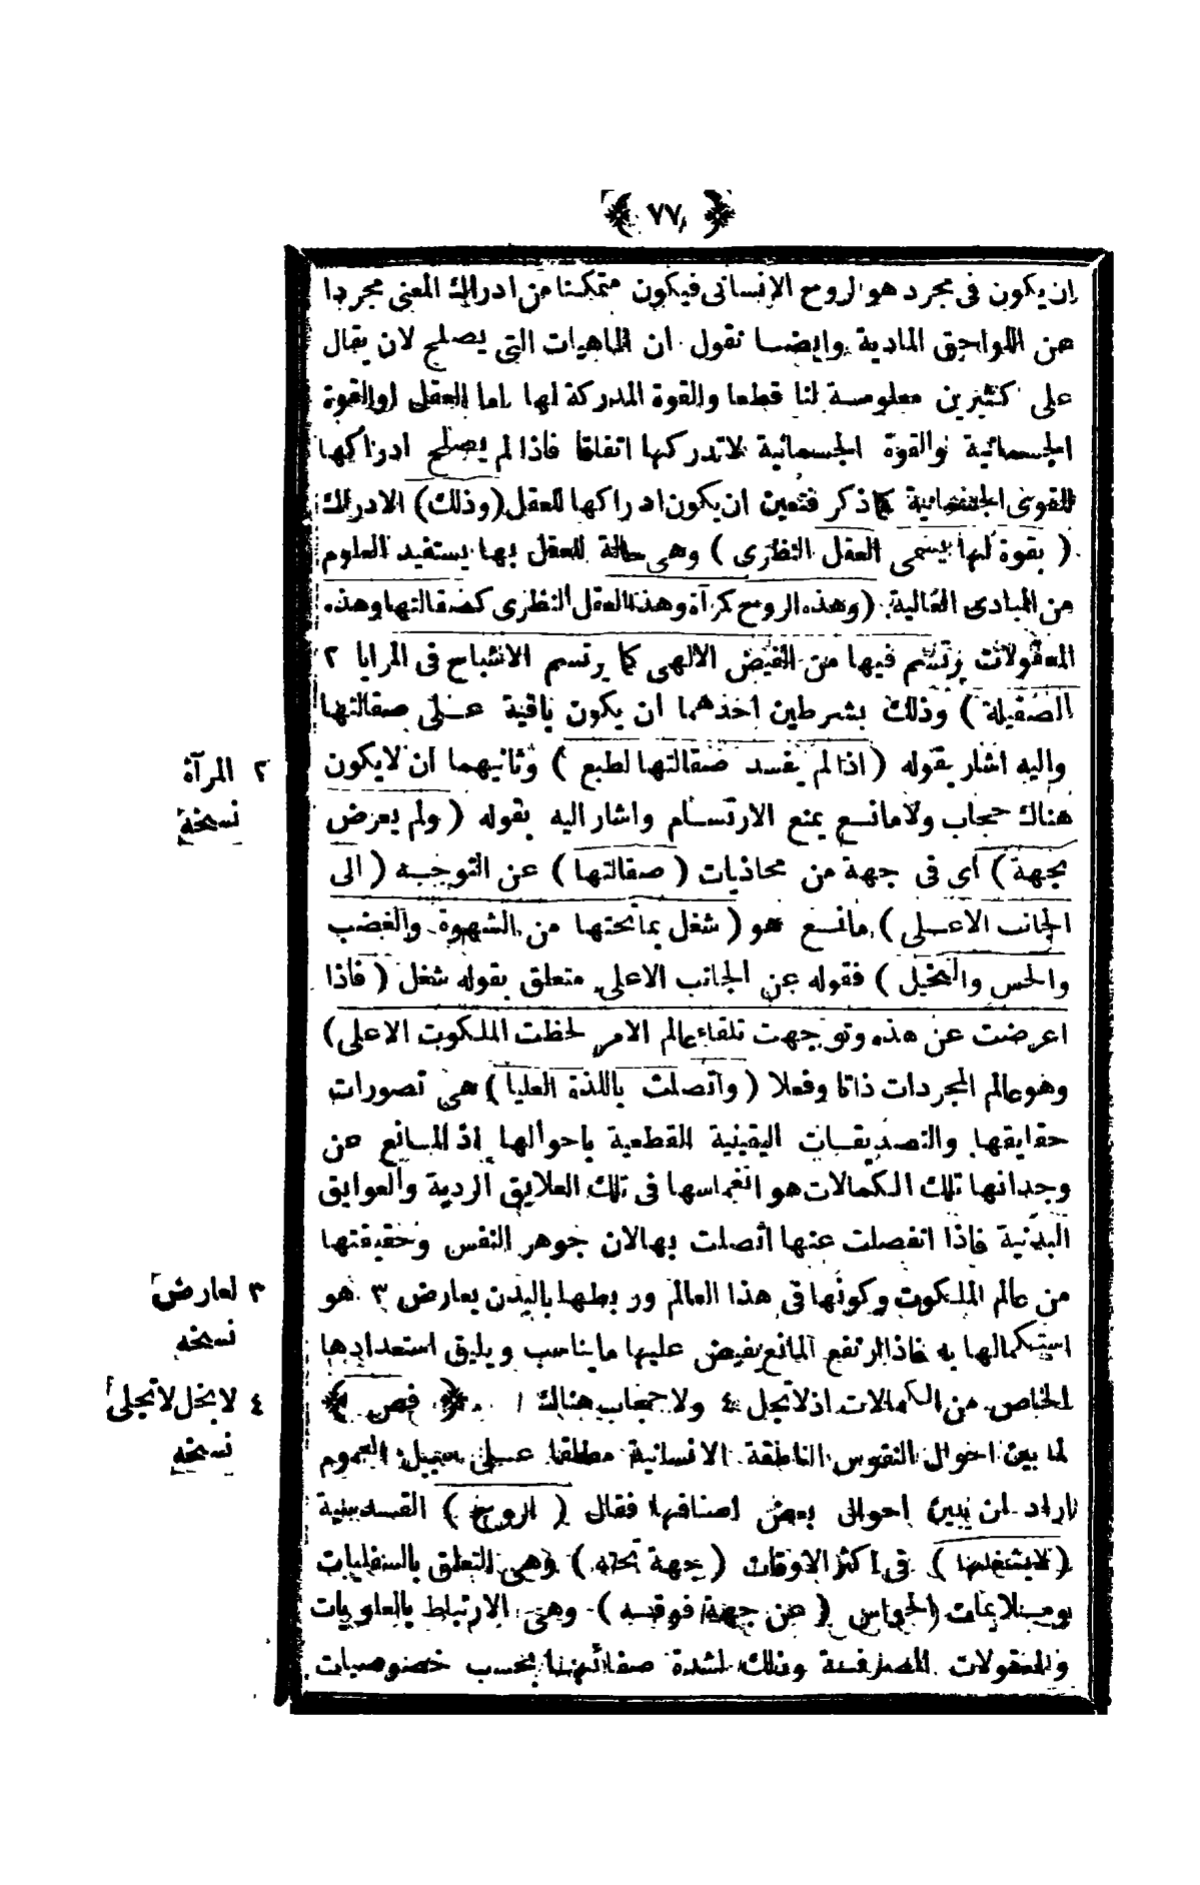 ﴿ ٧٧ ﴾
ان يكون فى مجرد هو الروح الانسانى فيكون متمكنا من ادراك المعنى مجردا
عن اللواحق المادية وايضا نقول ان الماهيات التى يصلح لان يقال
على كثيرين معلومة لنا قطعا والقوة المدركة لها اما العقل او القوة
الجسمانية والقوة الجسمانية لاتدركها اتفاقا فاذا لم يصلح ادراكها
للقوى الجسمانية كما ذكر فتعين ان يكون ادراكها للعقل (وذلك) الادراك
( بقوة لها يسمى العقل النظرى ) وهى حالة للعقل بها يستفيد العلوم
من المبادى العالية (وهذه الروح كمرآة وهذا العقل النظرى كصقالتها وهذه
المعقولات ترتسم فيها من الفيض الالهى كما يرتسم الاشباح فى المرايا ٢
الصقيلة ) وذلك بشرطين احدهما ان يكون باقية على صقالتها
واليه اشار بقوله ( اذا لم يفسد صقالتها لطبع ) وثانيهما ان لايكون
٢ المرآة
نسخة
هناك حجاب ولامانع يمنع الارتسام واشار اليه بقوله ( ولم يعرض
بجهة ) اى فى جهة من محاذيات ( صقالتها ) عن التوجه ( الى
الجانب الاعلى ) مانع هو ( شغل بماتحتها من الشهوة والغضب
والحس والتخيل ) فقوله عن الجانب الاعلى متعلق بقوله شغل ( فاذا
اعرضت عن هذه وتوجهت تلقاء عالم الامر لحظت الملكوت الاعلى )
وهو عالم المجردات ذاتا وفعلا ( واتصلت باللذة العليا ) هى تصورات
حقايقها والتصديقات اليقينية القطعية باحوالها اذ المانع عن
وجدانها تلك الكمالات هو انغماسها فى تلك العلايق الردية والعوايق
البدنية فاذا انفصلت عنها اتصلت بها لان جوهر النفس وحقيقتها
من عالم الملكوت وكونها فى هذا العالم وربطها بالبدن بعارض ٣ هو
٣ لعارض
نسخه
استكمالها به فاذا ارتفع المانع يفيض عليها مايناسب ويليق استعدادها
الخاص من الكمالات اذ لاتجل ٤ ولا حجاب هناك ﴿ فص ﴾
٤ لا بخل لا تجلى
نسخه
لما بين احوال النفوس الناطقة الانسانية مطلقا على سبيل العموم
اراد ان يبين احوال بعض اصنافها فقال ( الروح ) القدسية
( لايشغلها ) فى اكثر الاوقات ( جهة تحته ) وهى التعلق بالسفليات
وملايمات الحواس ( عن جهة فوقه ) وهى الارتباط بالعلويات
والمعقولات الصرفة وذلك لشدة صفائها بحسب خصوصيات